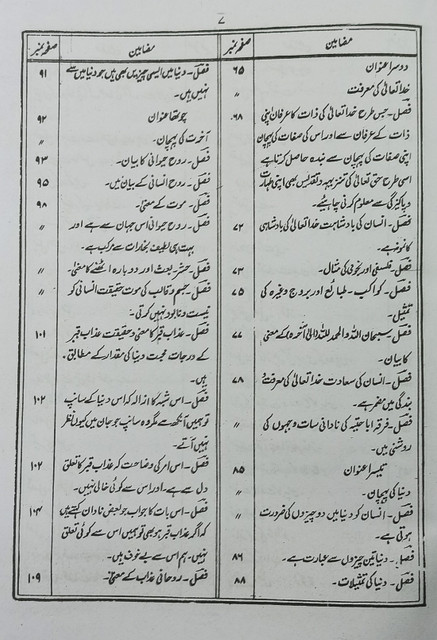 ۷
مضامین صفحہ نمبر
دوسرا عنوان ۶۵
خدا تعالیٰ کی معرفت ″
فصل۔ جس طرح خدا تعالیٰ کی ذات کا عرفان اپنی ۶۸
ذات کے عرفان سے اور اس کی صفات کی پہچان
اپنی صفات کی پہچان سے بندہ حاصل کرتا ہے
اسی طرح حق تعالیٰ کی تنزیہہ و تقدیس بھی اپنی طہارت
و پاکیزگی سے معلوم کرنی چاہیئے۔
فصل۔ انسان کی بادشاہت خدا تعالیٰ کی بادشاہی ۷۲
کا نمونہ ہے۔
فصل۔ فلسفی اور نجومی کی مثال۔ ۷۳
فصل۔ کواکب۔ طبائع اور بروج وغیرہ کی ۷۵
تمثیل۔
فصل سبحان اللہ و الحمد للہ کے معنی ۷۷
کا بیان۔
فصل۔ انسان کی سعادت خدا تعالیٰ کی معرفت و ۷۸
بندگی میں مضمر ہے۔
فصل۔ فرقہ اباحتیہ کی نادانی سات وجہوں کی ″
روشنی میں۔
تیسرا عنوان ۸۵
دنیا کی پہچان۔ ″
فصل۔ انسان کو دنیا میں دو چیزوں کی ضرورت ″
ہوتی ہے۔
فصل۔ دنیا تین چیزوں سے عبارت ہے۔ ۸۶
فصل۔ دنیا کی تمثیلات۔ ۸۸
مضامین صفحہ نمبر
فصل۔ دنیا میں ایسی چیزیں بھی ہیں جو دنیا میں سے ۹۱
نہیں ہیں۔
چوتھا عنوان ۹۲
آخرت کی پہچان۔ ″
فصل۔ روح حیوانی کا بیان۔ ۹۳
فصل۔ روح انسانی کے بیان میں۔ ۹۵
فصل۔ موت کے معنی۔ ۹۸
فصل۔ روح حیوانی اس جہان سے ہے اور ″
بہت ہی لطیف بخارات سے مرکب ہے۔
فصل۔ حشر بعث اور دوبارہ اٹھنے کا معنی۔ ″
فصل۔ جسم و قالب کی موت حقیقت انسانی کو ″
نیست و نابود نہیں کرتی۔
فصل۔ عذاب قبر کا معنی و حقیقت عذاب قبر ۱۰۱
کے درجات محبت دنیا کی مقدار کے مطابق۔
ہیں۔
فصل۔ اس شبہ کا ازالہ کہ اس دنیا کے سانپ ۱۰۲
تو ہمیں آنکھ سے مگر وہ سانپ جو جان میں کیوں نظر
نہیں آتے۔
فصل۔ اس امر کی وضاحت کہ عذاب قبر کا تعلق ۱۰۲
دل سے ہے۔ اور اس سے کوئی خالی نہیں۔
فصل۔ اس بات کا جواب جو بعض نادان کہتے ہیں ۱۰۴
کہ اگر عذاب قبر ہو بھی تو ہمیں اس سے کوئی تعلق
نہیں۔ ہم اس سے بے خوف ہیں۔
فصل۔ روحانی عذاب کے معنی۔ ۱۰۹